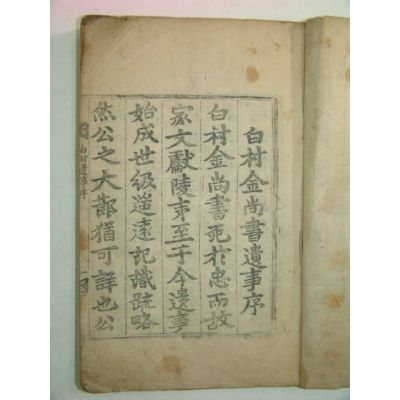 白村金尚書遺事序
白村金尚書死於忠而故
家文獻陵夷至于今遺事
始成世级遥遠記識疏略
然公之大節猶可詳也公
白村遺事序